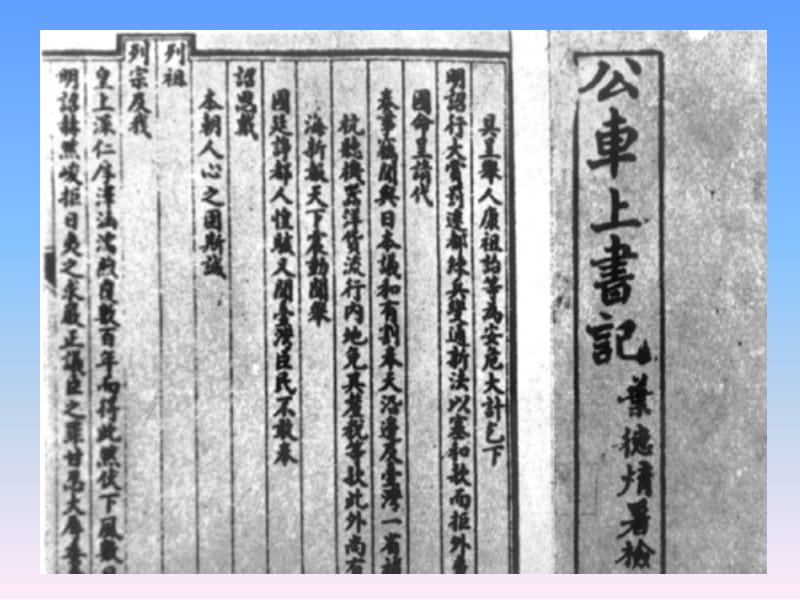 公車上書記
葉德署檢
具呈舉人康祖詒等為安危大計乞下
明詔行大賞罰遷都練兵變通新法以塞和款而拒外
國命呈請代
奏事竊聞與日本議和有割奉天沿邊及臺灣一省補
杭聽機器洋貨流行內地免其釐稅等款此外尚有
海新報天下震動聞舉
國廷諍都人惶駭又聞臺灣臣民不敢奉
詔思戴
本朝人心之固斯誠
列祖
列宗及我
皇上深仁厚澤涵濡煦覆數百年而得此然伏下風數日
明詔赫然峻拒日夷之求嚴正議臣之罪甘忍大辱委